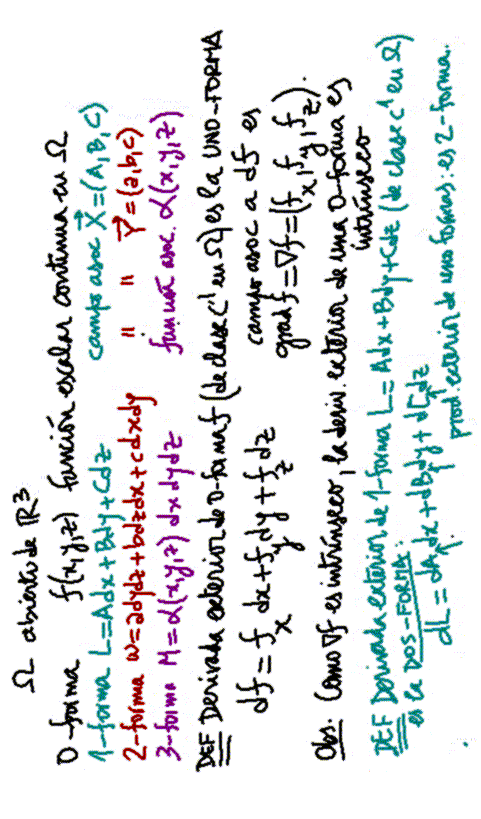 Ω abierto de ℝ³
0-forma f(x,y,z) función escalar continua en Ω
1-forma L=Adx+Bdy+Cdz campo asoc X⃗=(A,B,C)
2-forma ω=adydz+bdzdx+cdxdy " " Y⃗=(a,b,c)
3-forma M=α(x,y,z)dxdydz función asoc. α(x,y,z)
DEF Derivada exterior de 0-forma f (de clase C¹ en Ω) es la UNO-FORMA
df = f_x dx + f_y dy + f_z dz campo asoc a df es
grad f = ∇f = (f_x, f_y, f_z).
Obs. Como ∇f es intrínseco, la deriv. exterior de una 0-forma es
intrínseco
DEF Derivada exterior de 1-forma L=Adx+Bdy+Cdz (de clase C¹ en Ω)
es la DOS-FORMA:
dL = dA dx + dB dy + dC dz
prod. exterior de uno formas: es 2-forma.